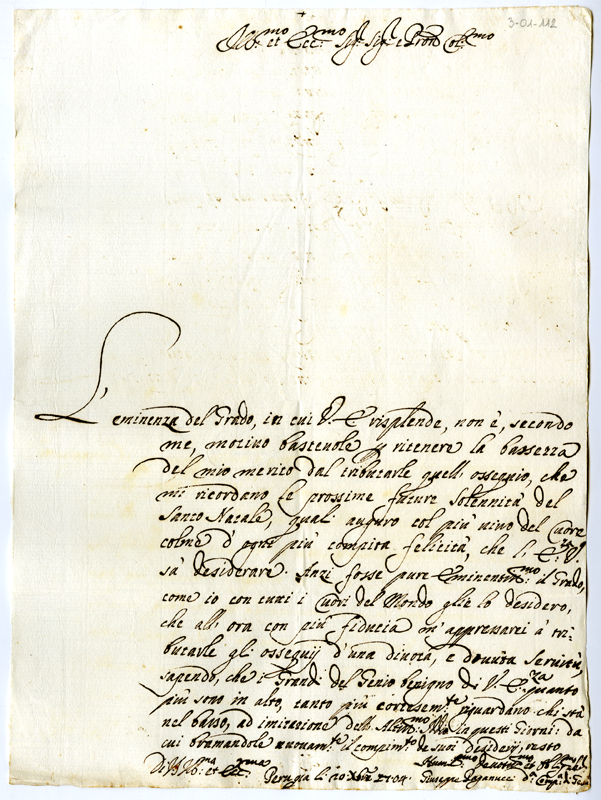 3-01-112
Ill:mo et Ecc:mo Sig:r Sig:r e Pron Col:mo
L'eminenza del Grado, in cui V. E. risplende, non è, secondo
me, motivo bastevole p ritenere la bassezza
del mio merito dal tributarle quell' ossequio, che
mi ricordano le prossime future solennità del
Santo Natale, quali auguro col più vivo del Cuore
colme d'ogni più compita felicità, che l' E:za V.
sà desiderare. Anzi fosse pure Eminentiss:mo il Grado,
come io con tutti i Cuori del Mondo glie lo desidero,
che all' ora con più fiducia m'appressarei à tri-
butarle gl' ossequij d'una divota, e dovuta servitù,
sapendo, che i Grandi del Genio benigno di V. E:za quanto
più sono in alto, tanto più cortesem:te riguardano chi stà
nel basso, ad imitazione dell' Altiss:mo in questi Giorni: da
cui bramandole nuovam:te il compim:to de suoi desiderij, resto
Di V. Ill:ma et Ecc:ma
Perugia li 20 Xbre 1704.
Hum:mo Devot:mo et
Giuseppe Paganucci d:a Comp:a di Giesù